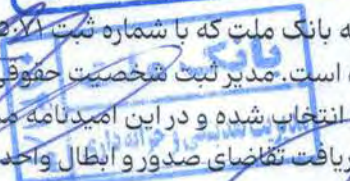 ه بانک ملت که با شماره ثبت ۷۱
است. مدیر ثبت شخصیت حقوقی
انتخاب شده و در این امیدنامه
دریافت تقاضای صدور و ابطال واحد
بانک ملت